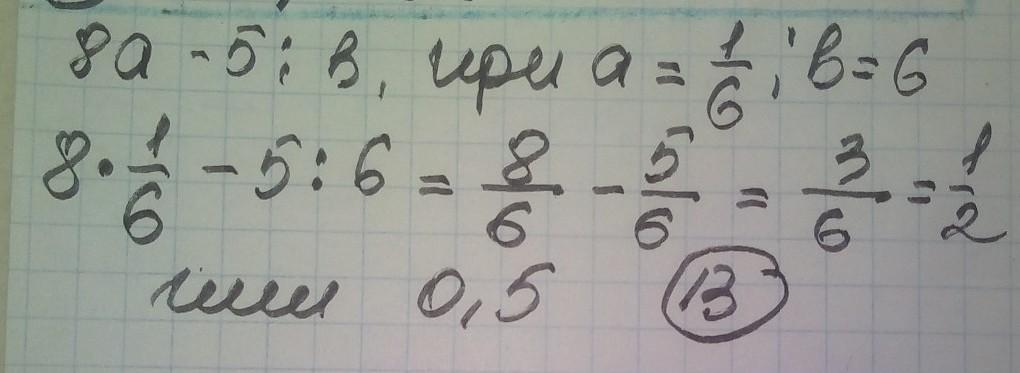 8а - 5 : в, при а = 1/6; в = 6
8 · 1/6 - 5 : 6 = 8/6 - 5/6 = 3/6 = 1/2
или 0,5 В